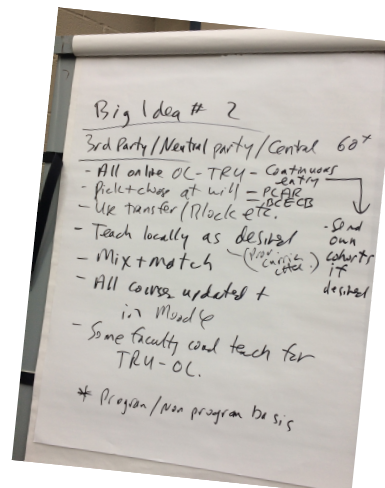 Big Idea # 2
3rd Party/Neutral party/Central 60+
- All online OC-TRU - Continuous entry
- Pick + choose at will = PLAR
= BCECB
- Use transfer/Block etc.
- Teach locally as desired
- Send own cohorts if desired
- Mix + match
- (Prov. Curric
- All courses updated +
in Moodle
- Some faculty could teach for
TRU-OC.
* Program/Non program basis